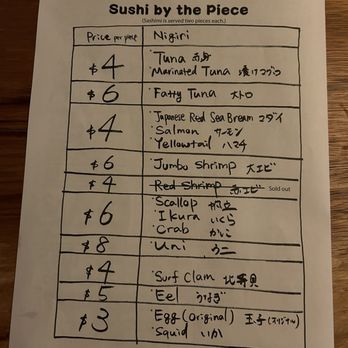 Sushi by the Piece
(Sashimi is served two pieces each.)
Price per piece Nigiri
$4 ・Tuna 赤身
・Marinated Tuna 漬けマグロ
$6 ・Fatty Tuna 大トロ
$4 ・Japanese Red Sea Bream マダイ
・Salmon サーモン
・Yellowtail ハマチ
$6 ・Jumbo Shrimp 大エビ
$4 ・Red Shrimp 赤エビ Sold out
$6 ・Scallop 帆立
・Ikura いくら
・Crab かに
$8 ・Uni ウニ
$4 ・Surf Clam 北寄貝
$5 ・Eel うなぎ
$3 ・Egg (Original) 玉子(オリジナル)
・Squid いか